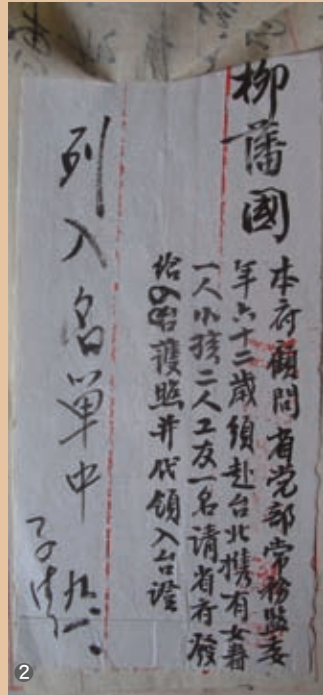 柳藩國
本府顧問省党部常務監委
年六十二歲須赴台北携有女眷
一人小孩二人工友一名請省府發
給 護照并代領入台證
列入名單中
2